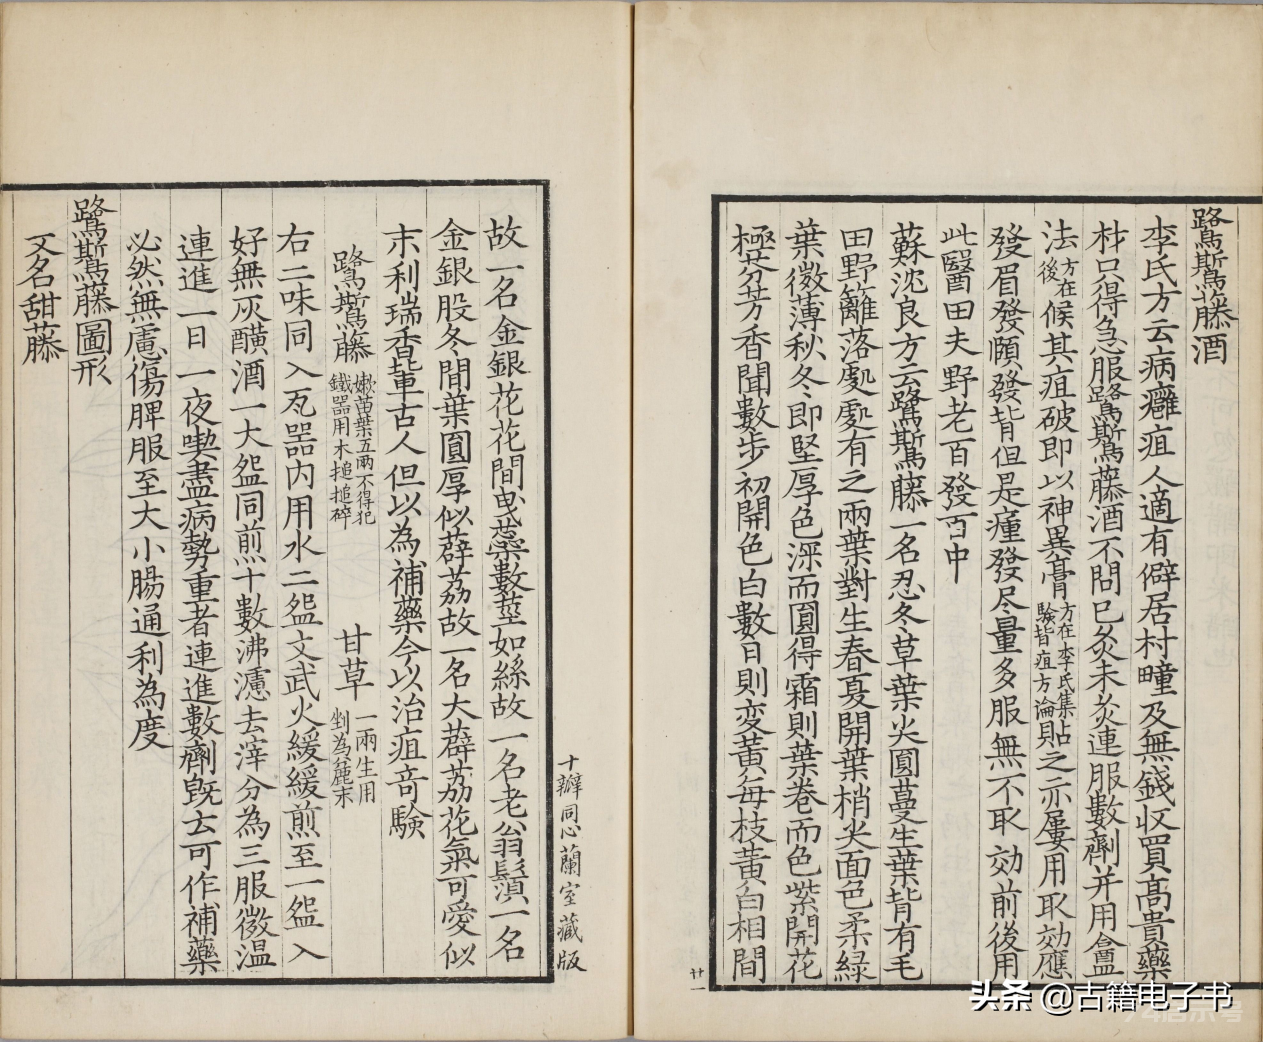 鷺鷥藤酒
李氏方云病癰疽人適有僻居村疃及無錢収買高貴藥
材只得急服鷺鷥藤酒不問已灸未灸連服數劑并用盦
法方在後候其疽破即以神異膏方在李氏集驗背疽方論貼之亦屢用取効應
發眉發頤發背但是瘇發尽量多服無不取効前後用
此醫田夫野老百發百中
蘇沈良方云鷺鷥藤一名忍冬草葉尖圓蔓生葉背有毛
田野籬落處處有之兩葉對生春夏開葉梢尖面色柔緑
葉微薄秋冬即堅厚色深而圓得霜則葉卷而色紫開花
極芬芳香聞數步初開色白數日則变黃每枝黃白相間
廿一
十瓣同心蘭室藏版
故一名金銀花花間曳蕊數莖如絲故一名老翁鬚一名
金銀股冬間葉圓厚似薜荔故一名大薜荔花氣可愛似
末利瑞香輩古人但以為補藥今以治疽奇驗
鷺鷥藤嫩苗葉五兩不得犯鐵器用木搥搥碎 甘草一兩生用剉為麄末
右二味同入瓦器内用水二盌文武火緩緩煎至一盌入
好無灰醆酒一大盌同煎十數沸濾去滓分為三服微温
連進一日一夜喫盡病勢重者連進數劑旣云可作補藥
必然無慮傷脾服至大小腸通利為度
鷺鷥藤圖形
又名甜藤
头条 @古籍电子书